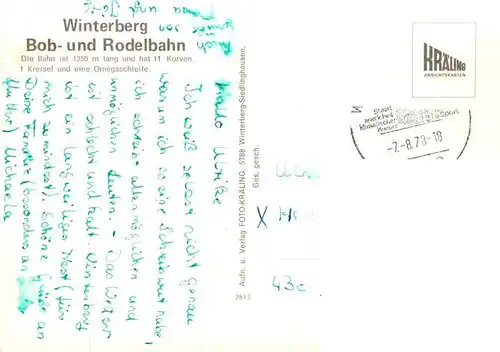 Winterberg
Bob- und Rodelbahn
Die Bahn ist 1250 m lang und hat 11 Kurven,
1 Kreisel und eine Omegaschleife.
Hallo Ulrike
Ich weiß selbst nicht genau
warum ich so eine Schreibwut habe,
ich schreibe allen möglichen und
unmöglichen Leuten. - Das Wetter
ist schlecht und kalt. Winterberg
ist ein langweiliges Nest (für
mich zumindest). Schöne Grüße an
Deine Familie (besonders an
Mutter) Michaela
Aufn. u. Verlag FOTO-KRÄLING, 5788 Winterberg-Siedlinghausen.
Ges. gesch.
2815
KRÄLING
ANSICHTSKARTEN
Staatl.
anerkannt
Kurort
Sport
-7.-8.78-18
43c